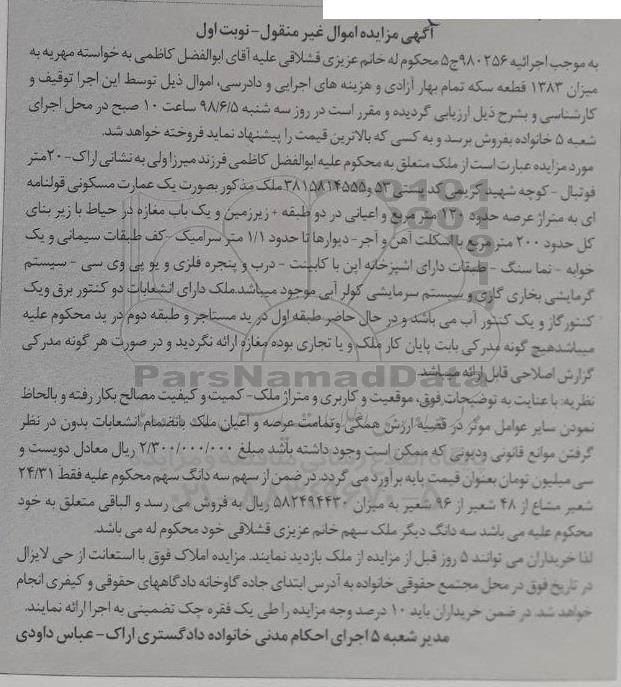 آگهی مزایده اموال غیر منقول - نوبت اول
به موجب اجرائیه ۹۸۰۲۵۶ج۵ محکوم له خانم عزیزی قشلاقی علیه آقای ابوالفضل کاظمی به خواسته مهریه به
میزان ۱۳۸۳ قطعه سکه تمام بهار آزادی و هزینه های اجرایی و دادرسی، اموال ذیل توسط این اجرا توقیف و
کارشناسی و بشرح ذیل ارزیابی گردیده و مقرر است در روز سه شنبه ۹۸/۶/۵ ساعت ۱۰ صبح در محل اجرای
شعبه ۵ خانواده بفروش برسد و به کسی که بالاترین قیمت را پیشنهاد نماید فروخته خواهد شد.
مورد مزایده عبارت است از ملک متعلق به محکوم علیه ابوالفضل کاظمی فرزند میرزا ولی به نشانی اراک - ۲۰متر
فوتبال - کوچه شهید کریمی کد پستی ۵۳ و۳۸۱۵۸۱۴۵۵۵ ملک مذکور بصورت یک عمارت مسکونی قولنامه
ای به متراژ عرصه حدود ۱۳۰ متر مربع و اعیانی در دو طبقه + زیرزمین و یک باب مغازه در حیاط با زیر بنای
کل حدود ۲۰۰ متر مربع با اسکلت آهن و آجر - دیوارها تا حدود ۱/۱ متر سرامیک - کف طبقات سیمانی و یک
خوابه - نما سنگ - طبقات دارای اشپزخانه اپن با کابینت - درب و پنجره فلزی و یو پی وی سی - سیستم
گرمایشی بخاری گازی و سیستم سرمایشی کولر آبی موجود میباشد.ملک دارای انشعابات دو کنتور برق ویک
کنتور گاز و یک کنتور آب می باشد و در حال حاضر طبقه اول در ید مستاجر و طبقه دوم در ید محکوم علیه
میباشدهیچ گونه مدرکی بابت پایان کار ملک و یا تجاری بوده مغازه ارائه نگردید و در صورت هر گونه مدرکی
گزارش اصلاحی قابل ارائه میباشد.
نظریه: با عنایت به توضیحات فوق، موقعیت و کاربری و متراژ ملک - کمیت و کیفیت مصالح بکار رفته و بالحاظ
نمودن سایر عوامل موثر در قضیه ارزش همگی وتمامت عرصه و اعیان ملک بانضمام انشعابات بدون در نظر
گرفتن موانع قانونی ودیونی که ممکن است وجود داشته باشد مبلغ ۲/۳۰۰/۰۰۰/۰۰۰ ریال معادل دویست و
سی میلیون تومان بعنوان قیمت پایه برآورد می گردد. در ضمن از سهم سه دانگ سهم محکوم علیه فقط ۲۴/۳۱
شعیر مشاع از ۴۸ شعیر از ۹۶ شعیر به میزان ۵۸۲۴۹۴۴۳۰ ریال به فروش می رسد و الباقی متعلق به خود
محکوم علیه می باشد سه دانگ دیگر ملک سهم خانم عزیزی قشلاقی خود محکوم له می باشد.
لذا خریداران می توانند ۵ روز قبل از مزایده از ملک بازدید نمایند. مزایده املاک فوق با استعانت از حی لایزال
در تاریخ فوق در محل مجتمع حقوقی خانواده به آدرس ابتدای جاده گاوخانه دادگاههای حقوقی و کیفری انجام
خواهد شد. در ضمن خریداران باید ۱۰ درصد وجه مزایده را طی یک فقره چک تضمینی به اجرا ارائه نمایند.
مدیر شعبه ۵ اجرای احکام مدنی خانواده دادگستری اراک - عباس داودی
ParsNamadData